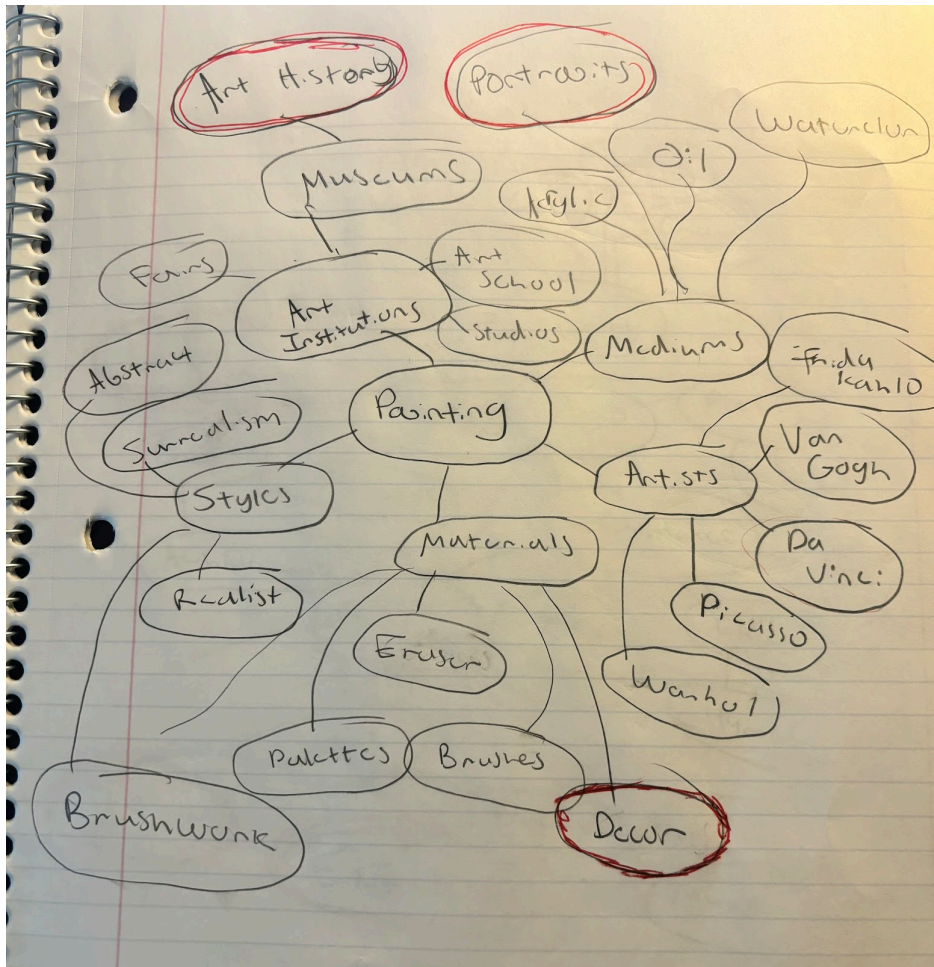 Art History
Portraits
Watercolor
Oil
Acrylic
Museums
Fairs
Art
School
Art
Institutions
Studios
Mediums
Frida
Kahlo
Abstract
Painting
Surrealism
Van
Gogh
Artists
Styles
Materials
Da
Vinci
Realist
Picasso
Eraser
Warhol
Palettes
Brushes
Brushwork
Decor